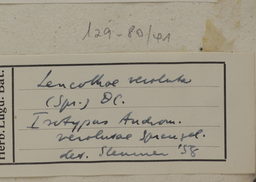 129-80/41
Herb. Lugd. Bat.
Leucothoe revoluta
(Spr.) DC.
Isotypus Androm.
revolutae Sprengel.
det. Sleumer '58